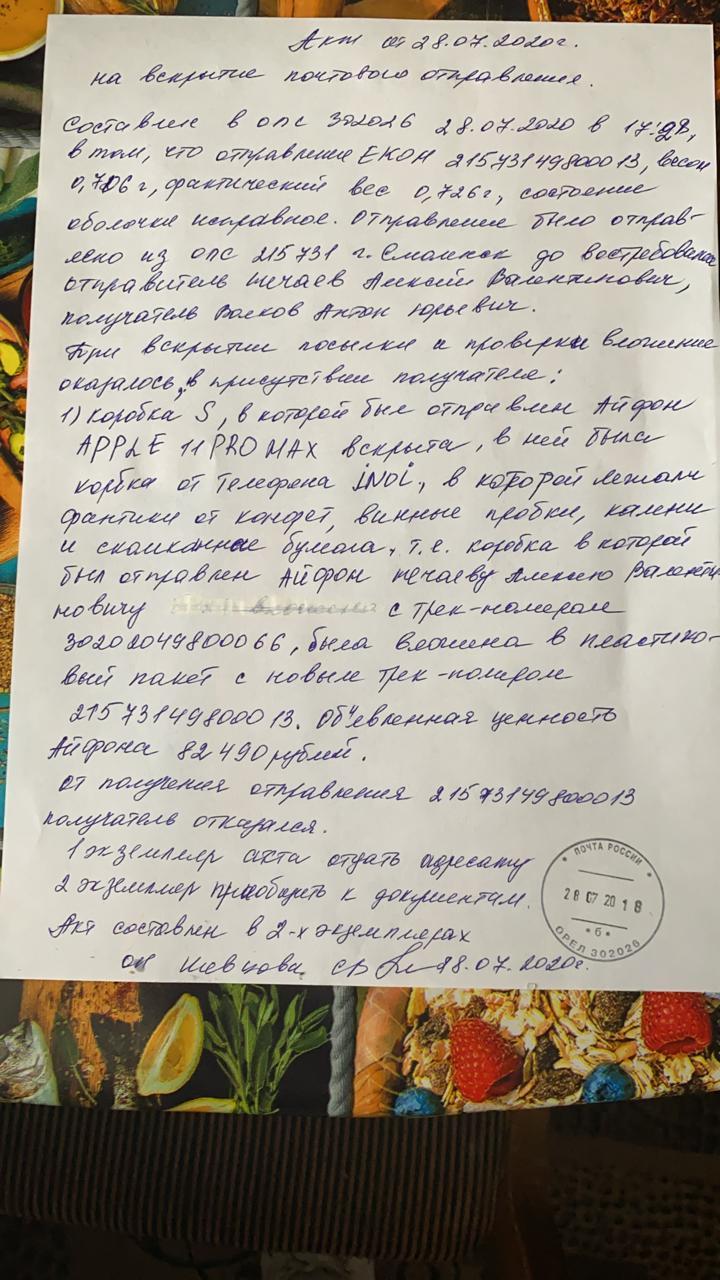 Акт от 28.07.2020г.
на вскрытие почтового отправления.
Составлен в опс 302026 28.07.2020 в 17:
в том, что отправление ЕКОН 21573149800013, весом
0,706г, фактический вес 0,726г, состояние
оболочки исправное. Отправление было отправ-
лено из опс 215731 г. Смоленск до востребования
отправитель Нечаев Алексей Валентинович,
получатель Волков Антон Юрьевич.
При вскрытии посылки и проверки вложение
оказалось, в присутствии получателя:
1) Коробка S, в которой был отправлен Айфон
APPLE 11 PRO MAX вскрыта, в ней была
корбка от телефона iNOi, в которой лежали
фантики от конфет, винные пробки, камени
и скомканная бумага, т.е. коробка в которой
был отправлен Айфон Нечаеву Алексею Валенти-
новичу с трек-номером
30202049800066, была вложена в пластико-
вый пакет с новым трек-номером
21573149800013. Объевленная ценность
Айфона 82 490 рублей.
От получения отправления 21573149800013
получатель отказался.
1 экземпляр акта отдать адресату
2 экземпляр приобщить к документам.
Акт составлен в 2-х экземплярах
оп Шевцова 28.07.2020г.
ПОЧТА РОССИИ
28 07 20 18
*б*
ОРЕЛ 302026